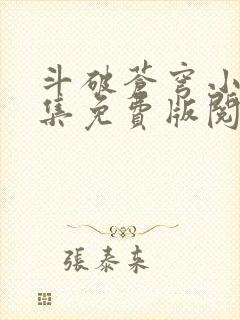 斗破苍穹小
集免費版閱
張泰来